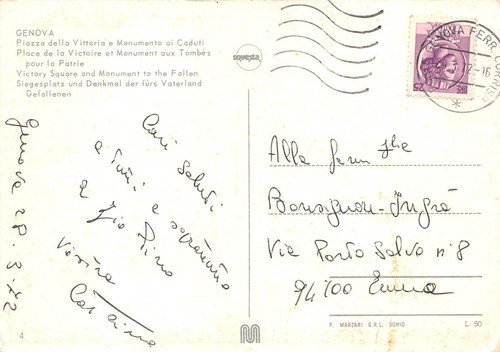 GENOVA
Piazza della Vittoria e Monumento ai Caduti
Place de la Victoire et Monument aux Tombés
pour la Patrie
Victory Square and Monument to the Fallen
Siegesplatz und Denkmal der fürs Vaterland
Gefallenen
sovesta
GENOVA FERR.
Genova 29.3.72
Cari saluti
a tutti e
a Zio Pino
Vostra
Alle fam
Bonsignori-Ingrà
Via Porto Salvo n° 8
94100 Enna
4
P. MARZARI S.R.L. SCHIO
L. 50